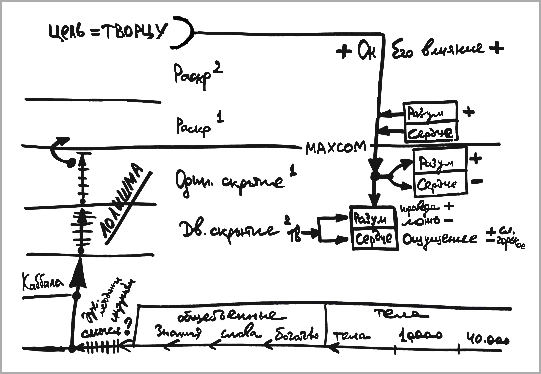 ЦЕЛЬ = ТВОРЦУ
+ Ок Его влияние +
Раскр²
Раскр¹
Разум +
Сердце
МАХСОМ
Один. скрытие¹
Разум +
Сердце -
ЛОЛИШМА
Дв. скрытие² Тв
Разум
Сердце
правда +
ложь -
ощущение + сл.
- горькое
Каббала
смысл?
общественные
тела
Знания слава богатство тела 10.000 40.000